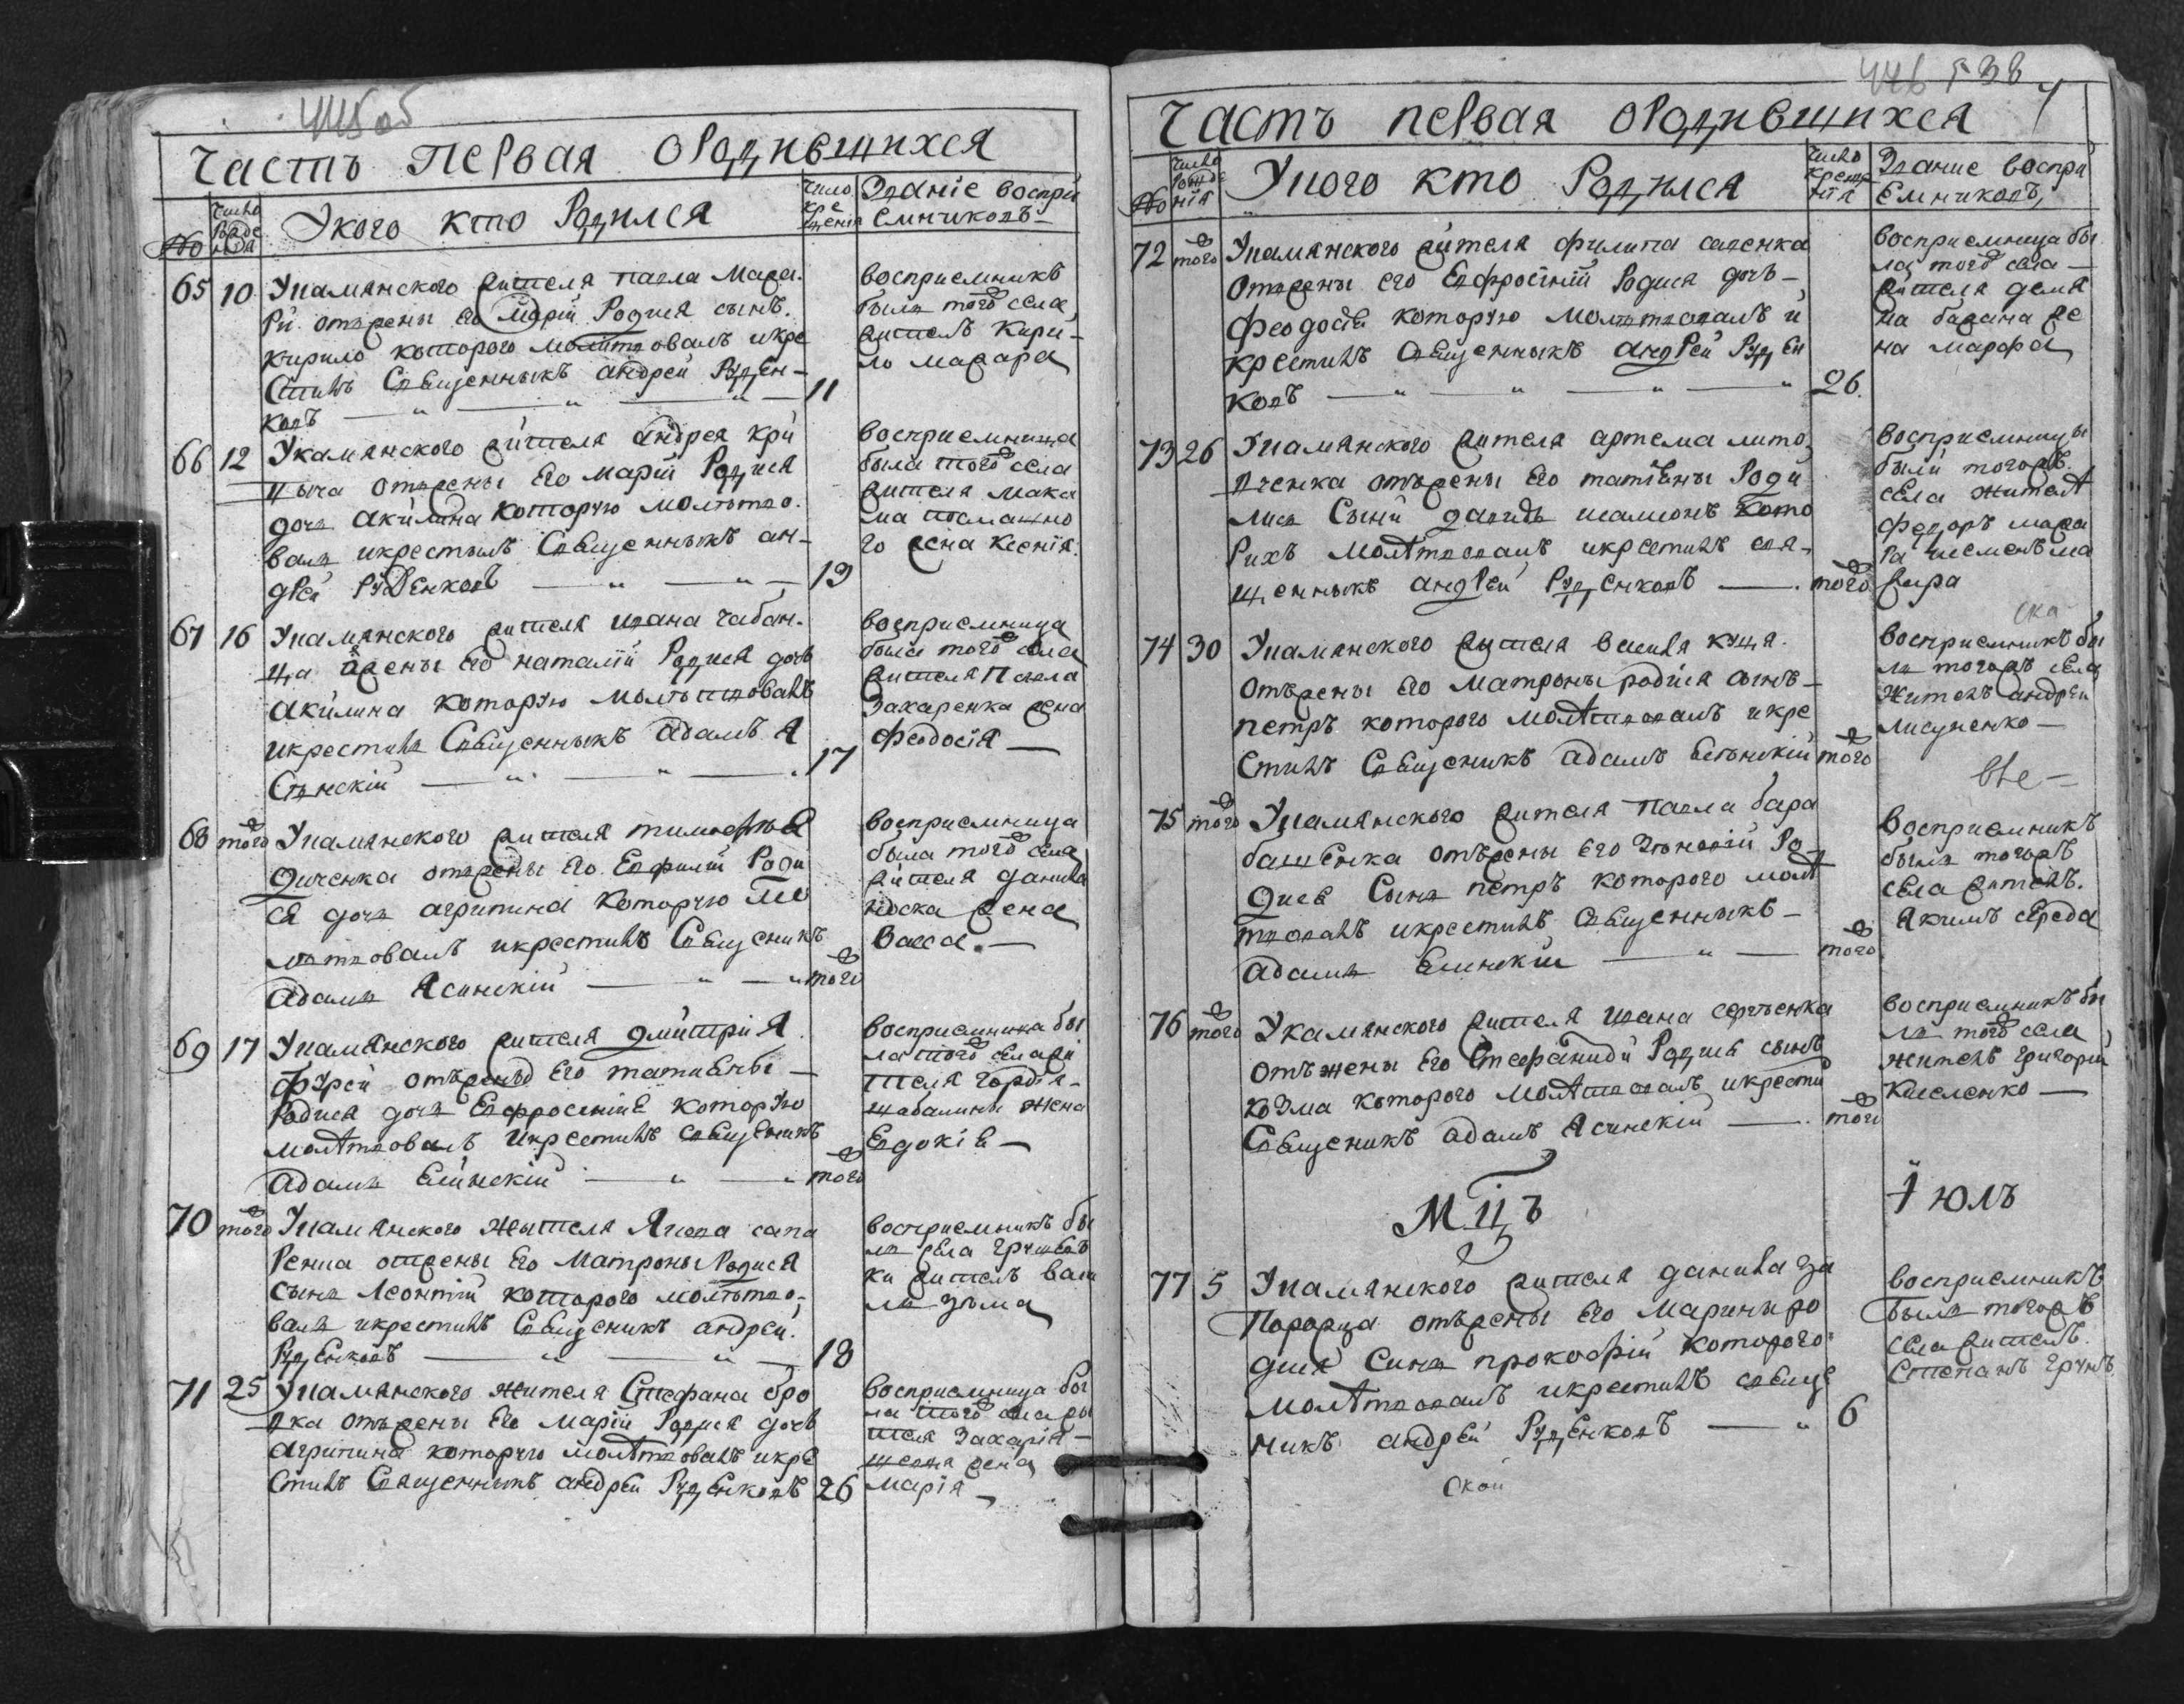 Часть Первая ородившихся
No
Число Рожде нїя
У кого кто Родился
Число кре щенїя
Званїе воспрїи емниковъ
65 10 Укамянского жителя павла Маза-
ри отжены его Марїи Родися сынъ
кирило которого молитвовалъ икре
стилъ Священныкъ андрей Руден-
ковъ 11
восприемникъ
былъ тогоже села
житель Кири-
ло мазара
66 12 Укамянского жителя андрея кри
отжены Его марїи Родися
дочъ акилина которую молытво-
валъ икрестылъ Священныкъ ан-
дрей РуДенковъ 13
восприемница
была тогоже села
жителя мака
го жена ксенїя
67 16 Укамянского жителя ивана чабан-
ца жены его наталїи Родися дочъ
акилина которую молытвовалъ
икрестилъ Священныкъ адамъ Я
синскїй 17
восприемница
была тогоже села
жителя Павла
Захаренка жена
феодосїя
68 тогож Укамянского жителя тимофея
дженка отжены его Евфимїи Роди
ся дочъ агрипина которую мо
литвовалъ икрестилъ Священикъ
адамъ Ясинскїй тогож
восприемница
была тогоже села
жителя данила
носка жена
васса
69 17 Укамянского жителя дмитрїя
отъжены Его татиены
Родися дочъ Евфросинїя которую
молитвовалъ икрестилъ священикъ
адамъ Есинскїй тогож
восприемница бы
ла тогоже села жи
теля гордѣя
жена
Евдокїя
70 тогож Укамянского жытеля Якова сапа
отжены его матроны Родися
сынъ леонтїй которого молитво-
валъ икрестилъ Священикъ андрей
Руденковъ 18
восприемникъ бы
лъ села грушев
ки житель васи
ль зыма
71 25 Укамянского жителя Стефана бро
вка отъжены его марїи Родися дочъ
агрипина которую молитвовалъ икре
стилъ Священныкъ андрей Руденковъ 26
восприемница бы
ла тогоже села жи
теля Захарїя
жена
марїя
Часть первая ородившихся
No
Число Рожде нїя
Укого кто Родился
Число креще нїя
Звание воспри емниковъ
72 тогож Укамянского жителя филипа савенка
отжены его Евфросїнїи Родися дочъ
феодосїя которую молитвовалъ и
крестилъ Священныкъ андрей Руден
ковъ 26
восприемница бы
ла тогож села
жителя демя
на бабана же
на марфа
73 26 Укамянского жителя артема лито
вченка отъжены Его татїены Роди
лися Сыни давидъ исамсонъ кото
рихъ молитвовалъ икрестилъ свя-
щенныкъ андрей Руденковъ тогож
восприемницы
были тогожъ
села жителѣ
федоръ маза
ра исеменъ ма
зира
74 30 Укамянского жителя василя куца
отъжены его матроны родися сынъ
петръ которого молитвовалъ икре
стилъ Священикъ адамъ Есинскїй тогож
восприемникъ бы
лъ тогожъ села
житель андрей
лисученко
75 тогож Укамянского жителя павла бара
башенка отъжены его Ро
дися Сынъ петръ которого моли
твовалъ икрестилъ Священныкъ
адамъ Есинскїй тогож
восприемникъ
былъ тогожъ
села житель
Якимъ середа
76 тогож Укамянского жителя ивана сергѣенка
отъжены Его Стефаниди Родися сынъ
козма которого молитвовалъ икрести
Священикъ адамъ Ясинскїй тогож
восприемникъ бы
лъ тогоже села
житель григорїй
киселенко
Мцъ Iюль
77 5 Укамянского жителя данила за
порожца отъжены его Марины ро
дися Синъ прокофїй которого
молитвовалъ икрестилъ свяще
никъ андрей Руденковъ 6
восприемникъ
былъ тогожъ
села житель
Степанъ грунъ